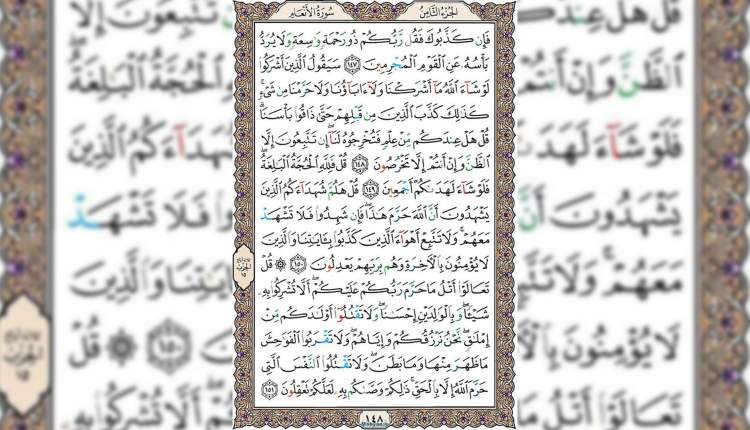 الجُزءُ الثَّامِنُ
سُورَةُ الأَنعَامِ
فَإِن كَذَّبُوكَ فَقُل رَّبُّكُمْ ذُو رَحْمَةٍ وَٰسِعَةٍ وَلَا يُرَدُّ
بَأْسُهُۥ عَنِ ٱلْقَوْمِ ٱلْمُجْرِمِينَ ١٤٧ سَيَقُولُ ٱلَّذِينَ أَشْرَكُوا۟
لَوْ شَآءَ ٱللَّهُ مَآ أَشْرَكْنَا وَلَآ ءَابَآؤُنَا وَلَا حَرَّمْنَا مِن شَىْءٍۚ
كَذَٰلِكَ كَذَّبَ ٱلَّذِينَ مِن قَبْلِهِمْ حَتَّىٰ ذَاقُوا۟ بَأْسَنَاۗ
قُلْ هَلْ عِندَكُم مِّنْ عِلْمٍ فَتُخْرِجُوهُ لَنَآۖ إِن تَتَّبِعُونَ إِلَّا
ٱلظَّنَّ وَإِنْ أَنتُمْ إِلَّا تَخْرُصُونَ ١٤٨ قُلْ فَلِلَّهِ ٱلْحُجَّةُ ٱلْبَٰلِغَةُۖ
فَلَوْ شَآءَ لَهَدَىٰكُمْ أَجْمَعِينَ ١٤٩ قُلْ هَلُمَّ شُهَدَآءَكُمُ ٱلَّذِينَ
يَشْهَدُونَ أَنَّ ٱللَّهَ حَرَّمَ هَٰذَاۖ فَإِن شَهِدُوا۟ فَلَا تَشْهَدْ
مَعَهُمْۚ وَلَا تَتَّبِعْ أَهْوَآءَ ٱلَّذِينَ كَذَّبُوا۟ بِـَٔايَٰتِنَا وَٱلَّذِينَ
لَا يُؤْمِنُونَ بِٱلْـَٔاخِرَةِ وَهُم بِرَبِّهِمْ يَعْدِلُونَ ١٥٠ ۞ قُلْ
تَعَالَوْا۟ أَتْلُ مَا حَرَّمَ رَبُّكُمْ عَلَيْكُمْۖ أَلَّا تُشْرِكُوا۟ بِهِۦ
شَيْـًٔاۖ وَبِٱلْوَٰلِدَيْنِ إِحْسَٰنًاۖ وَلَا تَقْتُلُوٓا۟ أَوْلَٰدَكُم مِّنْ
إِمْلَٰقٍۖ نَّحْنُ نَرْزُقُكُمْ وَإِيَّاهُمْۖ وَلَا تَقْرَبُوا۟ ٱلْفَوَٰحِشَ
مَا ظَهَرَ مِنْهَا وَمَا بَطَنَۖ وَلَا تَقْتُلُوا۟ ٱلنَّفْسَ ٱلَّتِى
حَرَّمَ ٱللَّهُ إِلَّا بِٱلْحَقِّۚ ذَٰلِكُمْ وَصَّىٰكُم بِهِۦ لَعَلَّكُمْ تَعْقِلُونَ ١٥١
الحزب
١٥
١٤٨